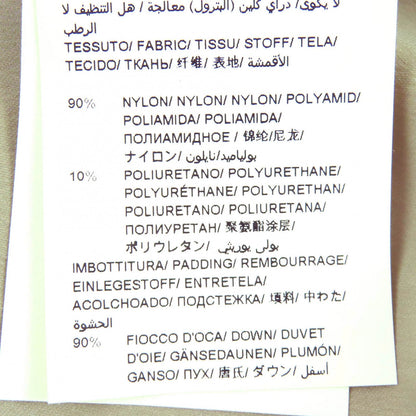 لا يكوى/ دراي كلين (البترول) معالجة / هل التنظيف لا
الرطب
TESSUTO/ FABRIC/ TISSU/ STOFF/ TELA/
TECIDO/ ТКАНЬ/ 纤维/ 表地/ الأقمشة
90% NYLON/ NYLON/ NYLON/ POLYAMID/
POLIAMIDA/ POLIAMIDA/
ПОЛИАМИДНОЕ / 锦纶/尼龙/
ナイロン/ بولياميد/نايلون
10% POLIURETANO/ POLYURETHANE/
POLYURÉTHANE/ POLYURETHAN/
POLIURETANO/ POLIURETANA/
ПОЛИУРЕТАН/ 聚氨酯涂层/
ポリウレタン/ بولي يوريثي
IMBOTTITURA/ PADDING/ REMBOURRAGE/
EINLEGESTOFF/ ENTRETELA/
ACOLCHOADO/ ПОДСТЕЖКА/ 填料/ 中わた/
الحشوة
90% FIOCCO D'OCA/ DOWN/ DUVET
D'OIE/ GÄNSEDAUNEN/ PLUMÓN/
GANSO/ ПУХ/ 唐氏/ ダウン/ أسفل/